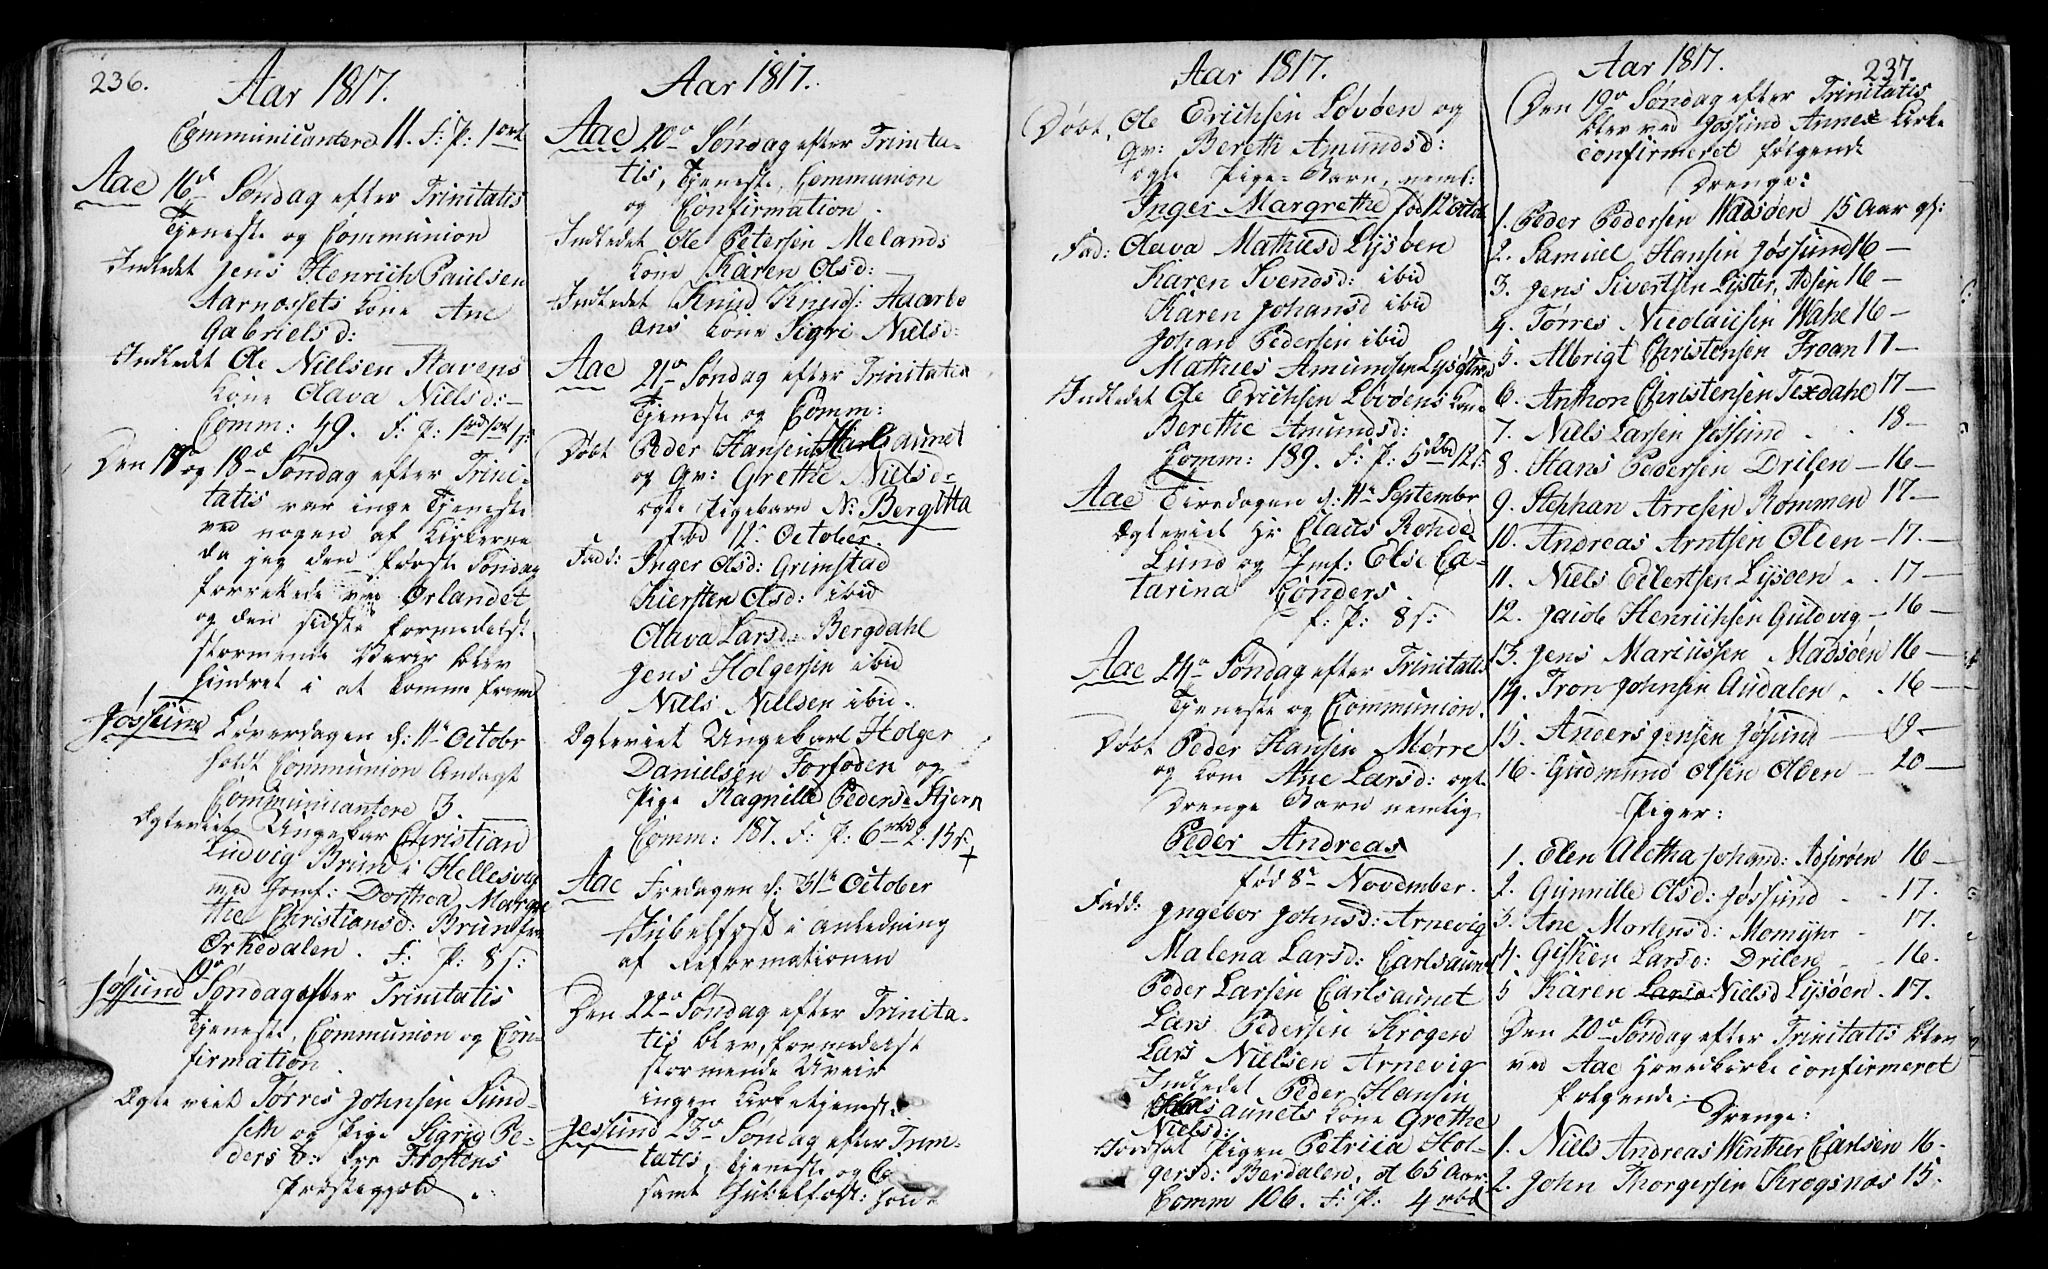 236.
Aar 1817.
Communicantere 11. F: P: 1 ort
Aae 16de Søndag efter Trinitatis
Tjeneste og Communion
Indledet Jens Henrich Paulsen
Aarnæssets kone Ane
Gabrielsd:
Indledet Ole Nielsen Stavens
kone Olava Nielsd:
Comm: 49. F: P:
Den 17de og 18de Søndag efter Trini-
tatis var inge Tjeneste
ved nogen af Kirkerne
da jeg den første Søndag
forrettede ved Ørlandet
og den sidste formedelst
stormende Veier blev
hindret i at komme frem
Jøssund Løverdagen d: 11te Octobr
holdt Communion Andagt
Communicantere 3.
Ægteviet Ungekar Christian
Ludvig Brun i Hellesvig
med Jomf: Dorthea Margre
the Christiansd: Brun fra
Orkedalen. F: P: 8 s:
Jøssund 19de Søndag efter Trinitatis
Tjeneste, Communion og Con-
firmation.
Ægteviet Tørres Johnsen Sund-
seth og Pige Sigrid Pe-
dersd: fra Fosens
Præstegjeld.
Aar 1817.
Aae 20de Søndag efter Trinita-
tis, Tjeneste, Communion
og Confirmation.
Indledet Ole Petersen Melands
kone Karen Olsd:
Indledet Knud Knuds: Aaarbo
ans kone Sigri Nielsd:
Aae 21de Søndag efter Trinitatis
Tjeneste og Comm:
Døbt Peder Hansen Karlsaunet
og Qv: Grethe Nielsd-
ægte Pigebarn N: Bergitta
fød 12te October.
Fadd: Inger Olsd: Grimstad
Kiersten Olsd: ibid
Olava Larsd: Bergdahl
Jens Holgersen ibid
Niels Nielsen ibid.
Ægteviet Ungekarl Holger
Danielsen Forfoden og
Pige Ragnille Pedersd Stjern
Comm: 187. F: P: 6 rbd 2: 15 s
Aae Fredagen d: 31te October
Jubelfæst i Anledning
af Reformationen
Den 22de Søndag efter Trinita-
tis blev, formedelst
stormende Uveir
ingen Kirketjenest:
Jøssund 23de Søndag efter Trini-
tatis, Tjeneste og Co
samt Jubelfæst: holdt
Aar 1817.
Døbt, Ole Erichsen Løvøen og
Qv: Bereth Amundsd:
ægte Pige-Barn, neml:
Inger Margrethe fød 12te Octob
Fad: Olava Mathiesd Lysøen
Karen Svendsd: ibid
Karen Johansd ibid
Johan Pedersen ibid
Mathies Amundsen Lysøen
Indledet Ole Erichsen Løvøens Kone
Berethe Amundsd:
Comm: 189. F: P: 5 rbd 12 s:
Aae Tirsdagen d: 11te September
Ægteviet Hr Claus Rohde
Lund og Jmf: Else Ca-
tarina Conders
f: P: 8 s:
Aae 24de Søndag efter Trinitatis
Tjeneste og Communion.
Døbt Peder Hansen Mørre
og kone Ane Larsd: ægte
Drenge Barn nemlig
Peder Andreas
fød 8de November.
Fadd: Ingebor Johnsd: Arnevig
Malena Larsd: Carlsaunet
Peder Larsen Carlsaunet
Lars Pedersen Krogen
Lars Nielsen Arnevig
Indledet Peder Hansen
Karlsaunets kone Grethe
Nielsd:
Jordfæt Pigen Petricia Hol-
gersd: Berdalen, af 65 Aar
Comm 106. F: P: 4 rbd
Aar 1817. 237.
Den 19de Søndag efter Trinitatis
blev ved Jøssund Annex Kirke
confirmeret følgende
Drenge:
1. Peder Pedersen Madsøen 15 Aar gl:
2. Samuel Hansen Jøssund 16 —
3. Jens Sivertsen Lyster, Adsen 16 —
4. Tørres Nicolaisen Wahl 16 —
5. Albrigt Christensen Froan 17 —
6. Anthon Christensen Texdahl 17 —
7. Niels Larsen Jøssund . . 18 —
8. Hans Pedersen Drilen — 16 —
9. Stephan Arnesen Rømmen 17. —
10. Andreas Arntsen Olden — 17. —
11. Niels Eilertsen Lysøen . . 17 —
12. Jacob Henrichsen Guldvig — 16 —
13. Jens Mariussen Madsøen 16 —
14. Tron Johnsen Audalen . . 16 —
15. Anders Jensen Jøssund — 19 —
16. Gudmund Olsen Olden — 20 —
Piger:
1. Elen Aletha Johansd: Adsersøen 16 —
2. Gunnille Olsd: Jøssund . . 17.
3. Ane Mortensd: Momyhr . 17.
4. Gisken Larsd: Drilen — 16.
5 Karen Larsd Nielsd Lysøen . 17.
Den 20de Søndag efter Trinitatis blev
ved Aae Hovedkirke confirmeret
følgende:
Drenge:
1. Niels Andreas Winther Carlsen 16 —
2. John Thorgersen Krogsnæs 15.